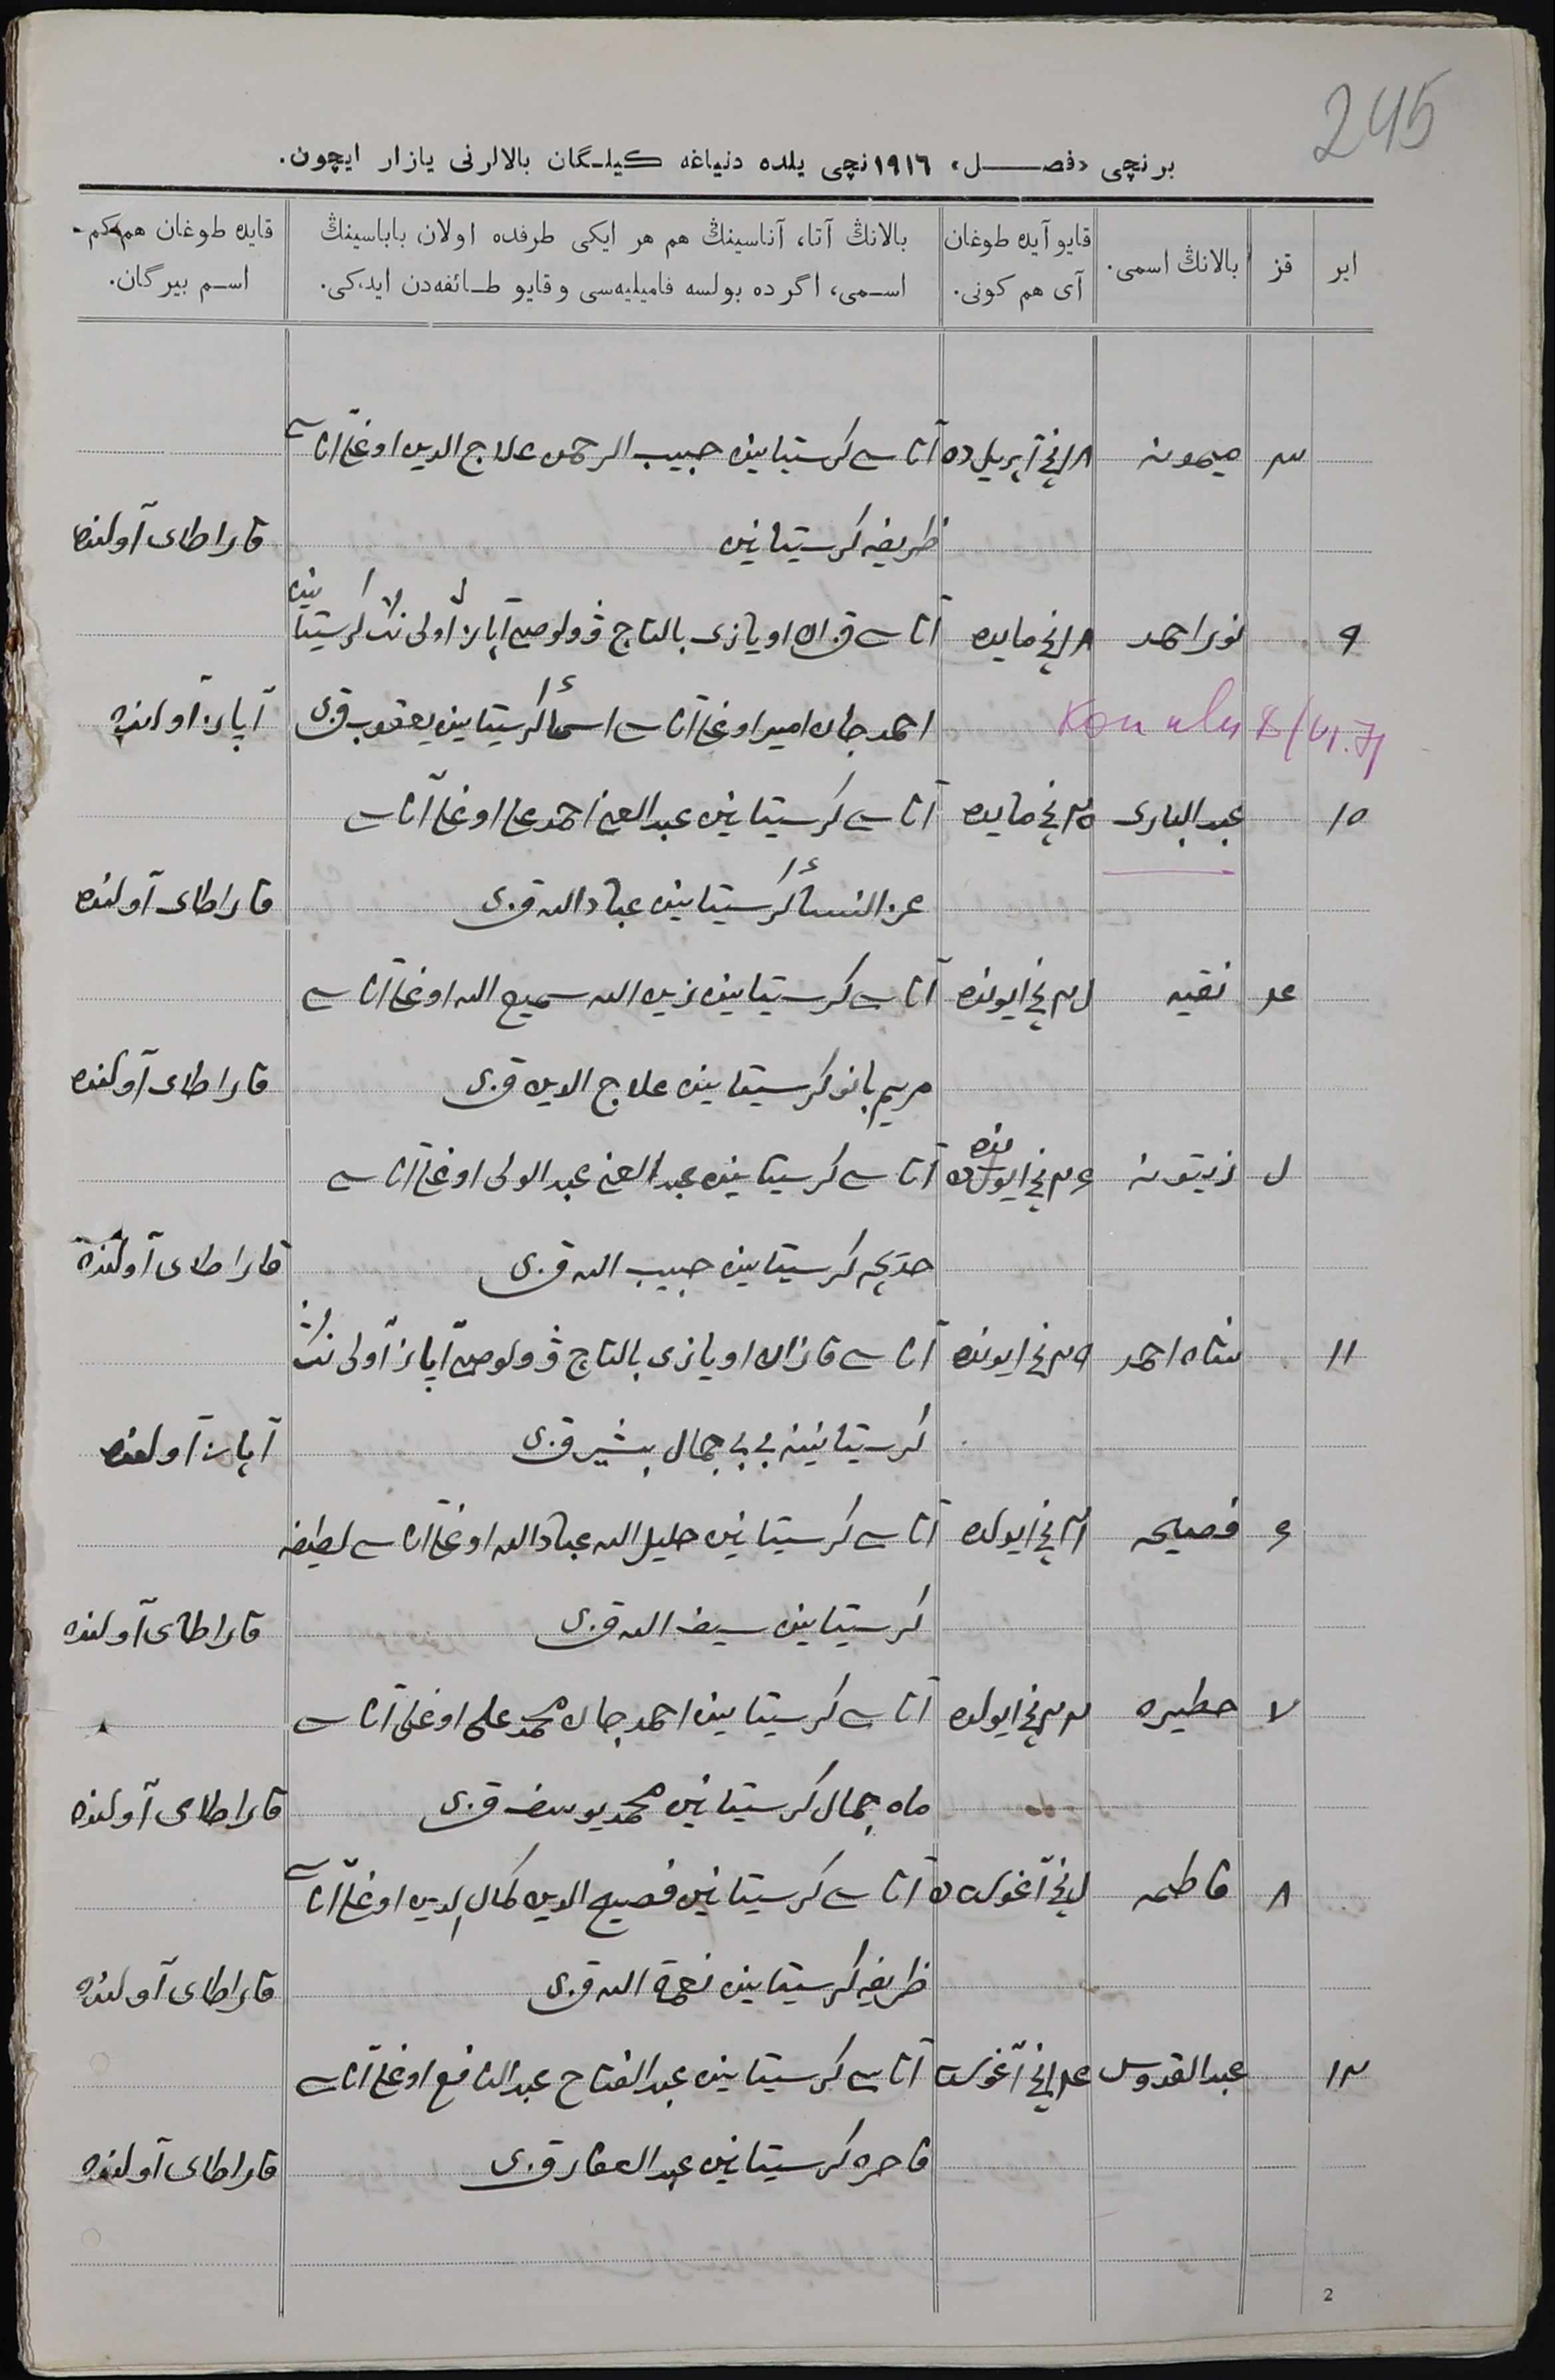 245
برنچی «فصل» ١٩١٦ نچی یلده دنیاغه کیلگان بالالرنی یازار ایچون.
ایر
قز
بالانڭ اسمی.
قایو آیده طوغان آی هم کونی.
بالانڭ آتا، آناسینڭ هم هر ایکی طرفده اولان باباسینڭ اسمی، اگرده بولسه فامیلیه‌سی و قایو طائفه‌دن ایدکی.
قایده طوغان هم کم اسم بیرگان.
میمونه ١٨ نچی آپریل ده آتاسی کرستیانین حبیب الرحمن علاج الدین اوغلی آناسی
ظریفه کرستیانین قاراطای آولنده
٩ نور احمد ١٨ نچی مایده آتاسی قزان اویازی بالتاج ڤولوصی آپاز آولی نڭ کرستیانین
احمدجان امیر اوغلی آناسی اسماء کرستیانین یعقوب قزی آپاز آولنده
١٠ عبد الباری نچی مایده آتاسی کرستیانین عبد الغنی احمد علی اوغلی آناسی
عز النساء کرستیانین عباد الله قزی قاراطای آولنده
٤ نقیه نچی ایونده آتاسی کرستیانین زین الله سمیع الله اوغلی آناسی
مریم بانو کرستیانین علاج الدین قزی قاراطای آولنده
٥ زیتونه نچی ایونده آتاسی کرستیانین عبد الغنی عبد الولی اوغلی آناسی
خدیجه کرستیانین حبیب الله قزی قاراطای آولنده
١١ شاه احمد نچی ایونده آتاسی قازان اویازی بالتاج ڤولوصی آپاز آولی نڭ
کرستیانینه بی بی جمال بشیر قزی آپاز آولنده
٦ فصیحه نچی ایولده آتاسی کرستیانین خلیل الله عباد الله اوغلی آناسی لطیفه
کرستیانین سیف الله قزی قاراطای آولنده
٧ خطیره نچی ایولده آتاسی کرستیانین احمدجان محمد علی اوغلی آناسی
ماه جمال کرستیانین محمد یوسف قزی قاراطای آولنده
٨ فاطمه ٥ نچی آغوستده آتاسی کرستیانین فصیح الدین کمال الدین اوغلی آناسی
ظریفه کرستیانین نعمة الله قزی قاراطای آولنده
١٢ عبد القدوس ١٤ نچی آغوست آتاسی کرستیانین عبد الفتاح عبد النافع اوغلی آناسی
کرستیانین عبد الغفار قزی قاراطای آولنده
2